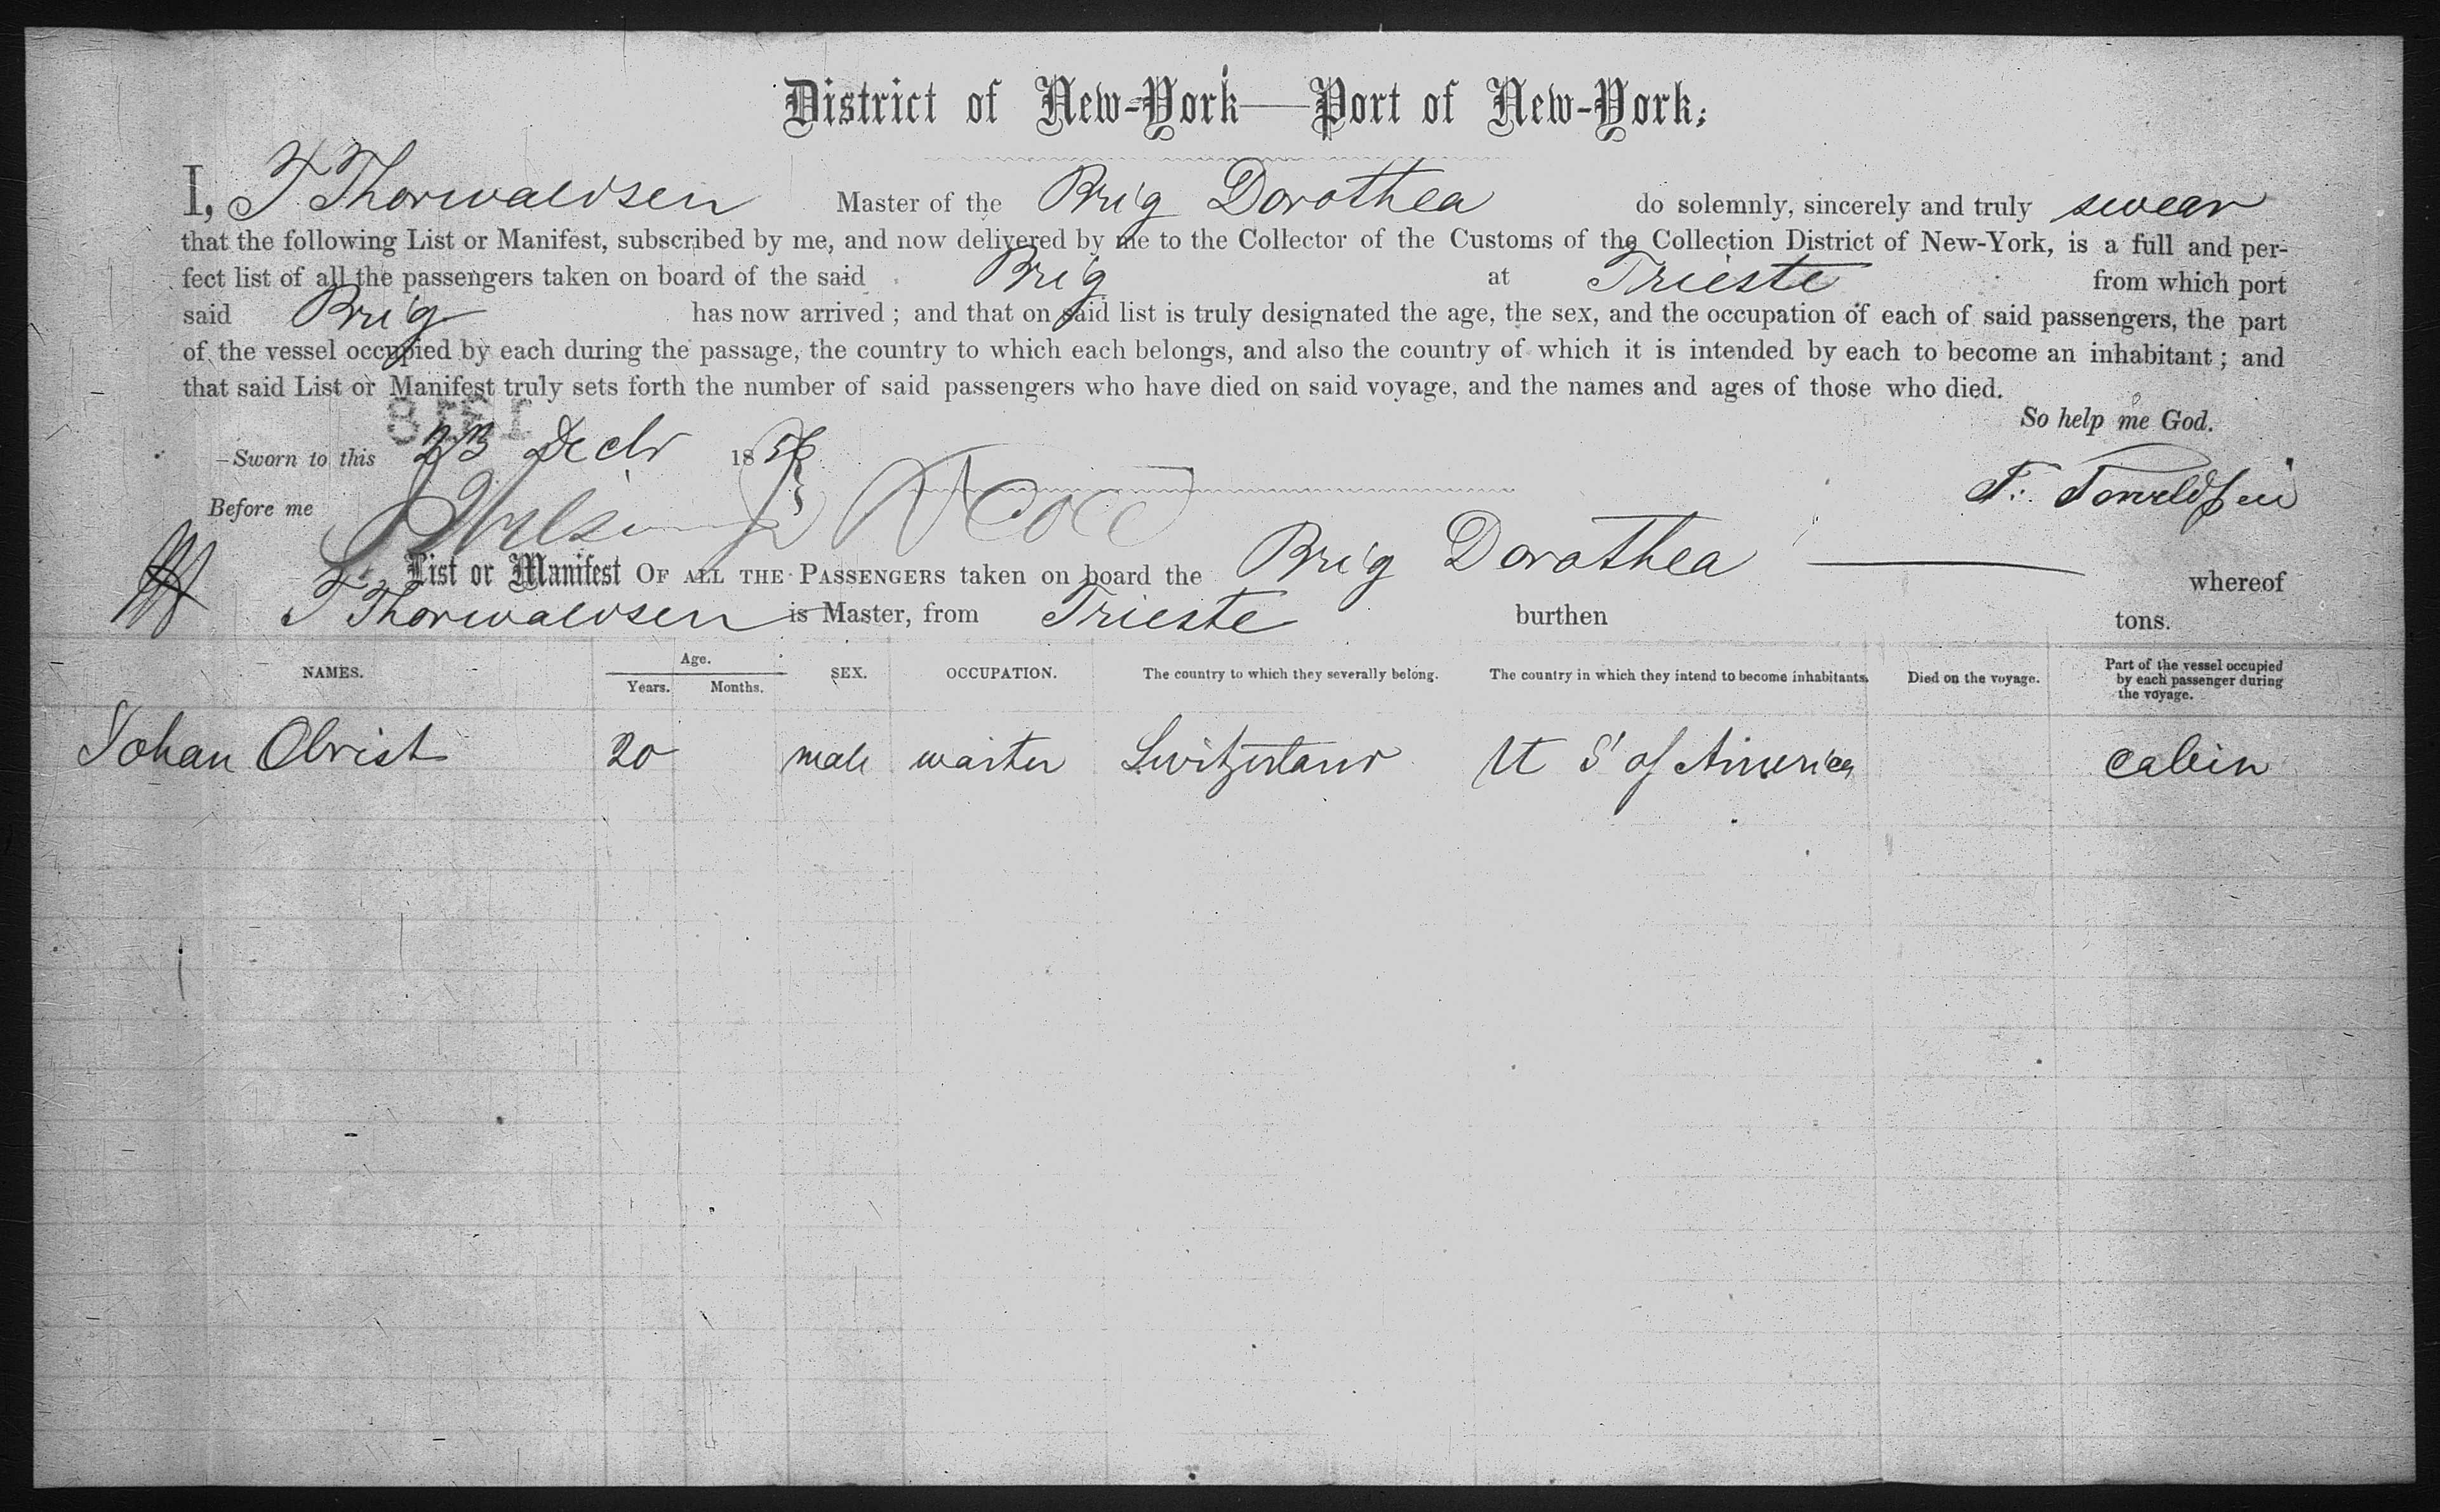 District of New-York—Port of New-York.
I, T Thorwaldsen Master of the Brig Dorothea do solemnly, sincerely and truly swear
that the following List or Manifest, subscribed by me, and now delivered by me to the Collector of the Customs of the Collection District of New-York, is a full and per-
fect list of all the passengers taken on board of the said Brig at Trieste from which port
said Brig has now arrived ; and that on said list is truly designated the age, the sex, and the occupation of each of said passengers, the part
of the vessel occupied by each during the passage, the country to which each belongs, and also the country of which it is intended by each to become an inhabitant ; and
that said List or Manifest truly sets forth the number of said passengers who have died on said voyage, and the names and ages of those who died.
So help me God.
Sworn to this 23 Decbr 1856
Before me
List or Manifest OF ALL THE PASSENGERS taken on board the Brig Dorothea whereof
T Thorwaldsen is Master, from Trieste burthen tons.
NAMES. Age. Years. Months. SEX. OCCUPATION. The country to which they severally belong. The country in which they intend to become inhabitants. Died on the voyage. Part of the vessel occupied by each passenger during the voyage.
Johan Obrist 20 male waiter Switzerland U S of America cabin